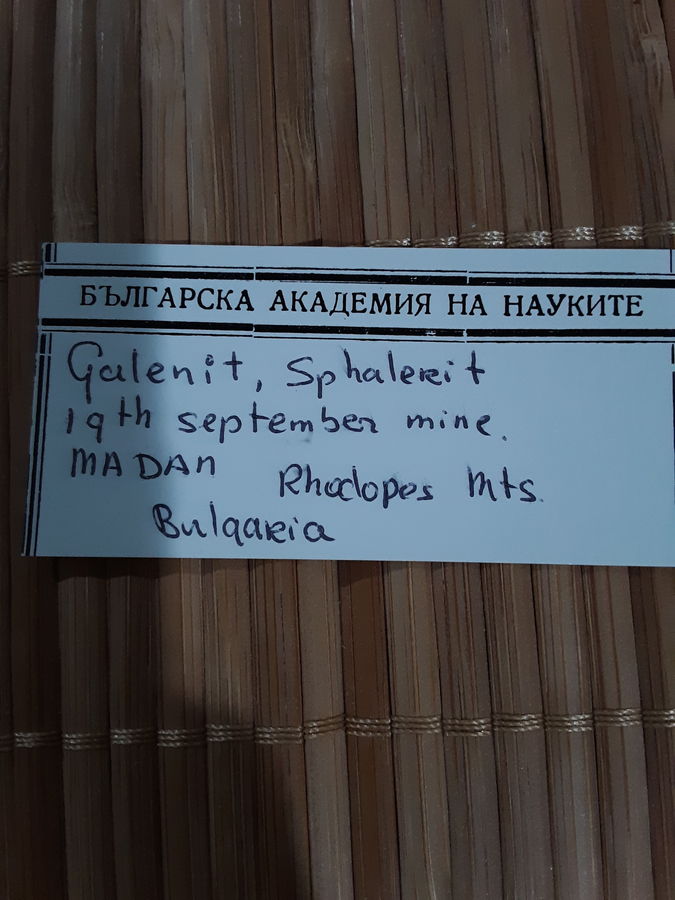 БЪЛГАРСКА АКАДЕМИЯ НА НАУКИТЕ
Galenit, Sphalerit
19th september mine.
MADAN Rhodopes Mts.
Bulgaria